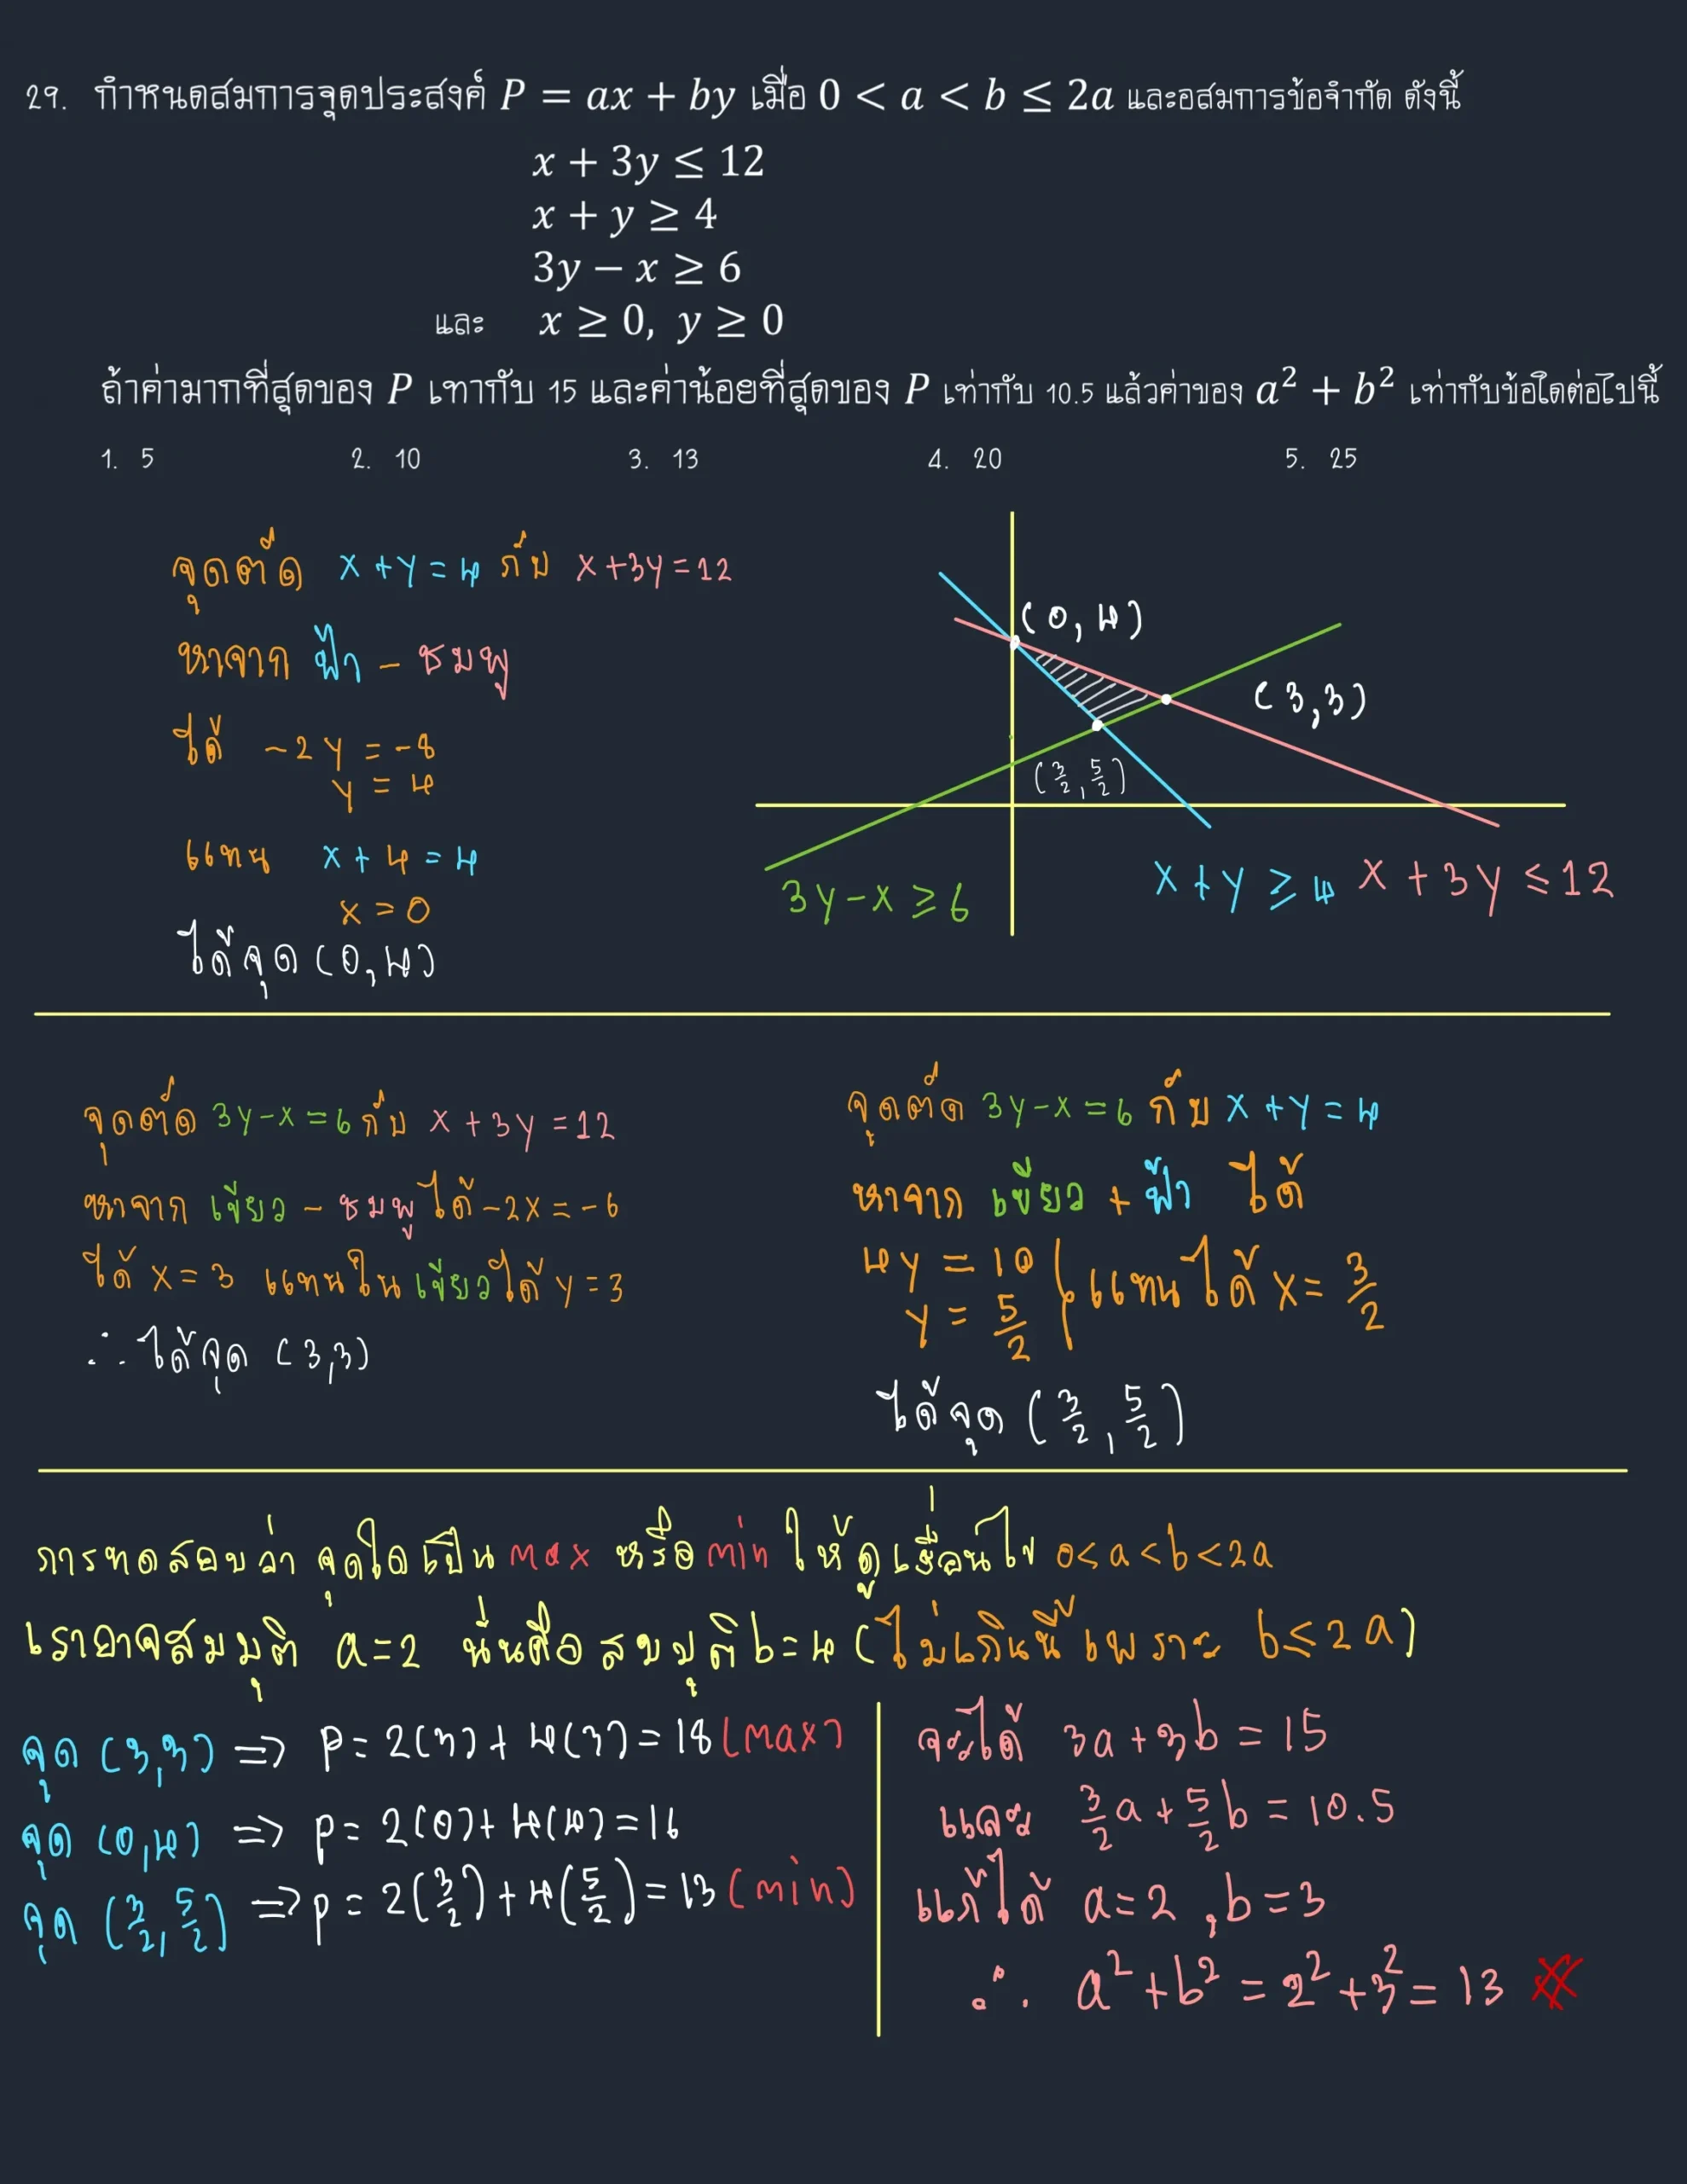 29. กำหนดสมการจุดประสงค์ P = ax + by เมื่อ 0 < a < b ≤ 2a และอสมการข้อจำกัด ดังนี้
x + 3y ≤ 12
x + y ≥ 4
3y − x ≥ 6
และ x ≥ 0, y ≥ 0
ถ้าค่ามากที่สุดของ P เทากับ 15 และค่าน้อยที่สุดของ P เท่ากับ 10.5 แล้วค่าของ a² + b² เท่ากับข้อใดต่อไปนี้
1. 5 2. 10 3. 13 4. 20 5. 25
จุดตัด x + y = 4 กับ x + 3y = 12
หาจาก ฟ้า − ชมพู
ได้ −2y = −8
y = 4
แทน x + 4 = 4
x = 0
ได้จุด (0,4)
(0,4)
(3,3)
(3/2, 5/2)
3y − x ≥ 6
x + y ≥ 4
x + 3y ≤ 12
จุดตัด 3y − x = 6 กับ x + 3y = 12
หาจาก เขียว − ชมพู ได้ −2x = −6
ได้ x = 3 แทนใน เขียว ได้ y = 3
∴ ได้จุด (3,3)
จุดตัด 3y − x = 6 กับ x + y = 4
หาจาก เขียว + ฟ้า ได้
4y = 10
y = 5/2
แทนได้ x = 3/2
ได้จุด (3/2, 5/2)
การทดสอบว่า จุดใดเป็น max หรือ min ให้ดูเงื่อนไข 0 < a < b < 2a
เราอาจสมมุติ a = 2 นั่นคือ สมมุติ b = 4 (ไม่เกินนี้ เพราะ b ≤ 2a)
จุด (3,3) ⇒ P = 2(3) + 4(3) = 18 (max)
จุด (0,4) ⇒ P = 2(0) + 4(4) = 16
จุด (3/2, 5/2) ⇒ P = 2(3/2) + 4(5/2) = 13 (min)
จะได้ 3a + 3b = 15
และ 3/2 a + 5/2 b = 10.5
แก้ได้ a = 2 , b = 3
∴ a² + b² = 2² + 3² = 13